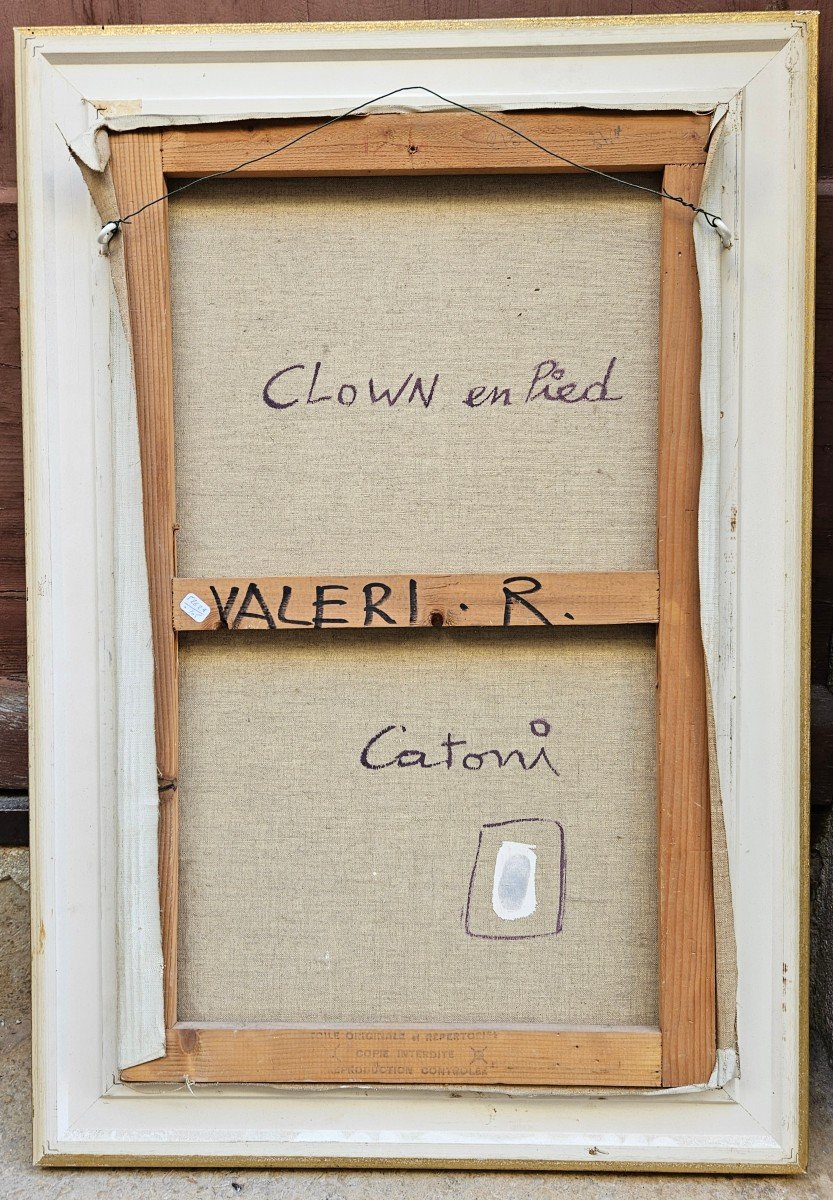 CLOWN en Pied
VALERI. R.
Catoni
TOILE ORIGINALE et REPERTORIEE
COPIE INTERDITE
REPRODUCTION CONTROLEE